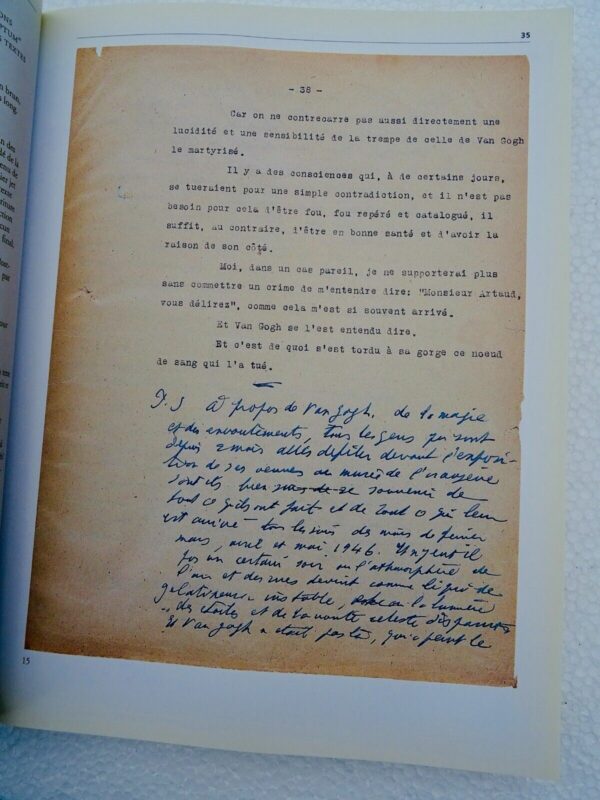 35
ONS
PTUM"
TEXTES
bran.
long.
- 38 -
Car on ne contrecarre pas aussi directement une
lucidité et une sensibilité de la trempe de celle de Van Gogh
le martyrisé.
Il y a des consciences qui, à de certains jours,
se tueraient pour une simple contradiction, et il n'est pas
besoin pour cela d'être fou, fou repéré et catalogué, il
suffit, au contraire, d'être en bonne santé et d'avoir la
raison de son côté.
Moi, dans un cas pareil, je ne supporterai plus
sans commettre un crime de m'entendre dire: "Monsieur Artaud,
vous délirez", comme cela m'est si souvent arrivé.
Et Van Gogh se l'est entendu dire.
Et c'est de quoi s'est tordu à sa gorge ce noeud
de sang qui l'a tué.
P. S A propos de Van Gogh, de la magie
et des envoutements, tous les gens qui sont
depuis 2 mois allés défiler devant l'exposi-
tion de ses œuvres au musée de l'orangerie
sont ils bien se souvenir de
tout ce qu'ils ont fait et de tout ce qui leur
est arrivé tous les soirs des mois de février
mars, avril et mai 1946. N'y eut il
pas un certain soir où l'athmosphère de
l'air et des rues devint comme liquide
gélatineuse instable, et où la lumière
des étoiles et de la voute céleste disparut
Et Van Gogh n'était pas là, qui a peint le
15